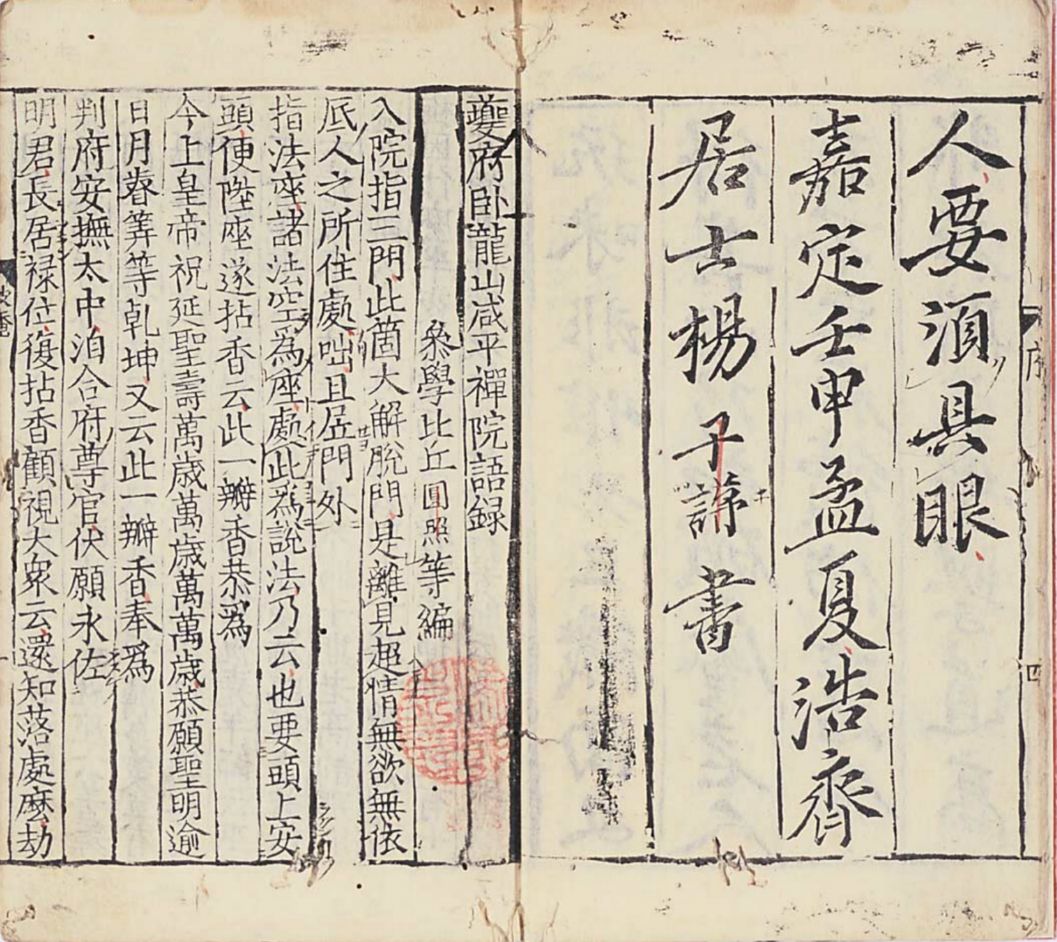 人要湏具眼
嘉定壬申孟夏浩齊
居士楊子謙書
序
四
夔府卧龍山咸平禪院語録
叅學比丘圓照等編
入院指三門此箇大解脫門是離見超情無欲無依
底人之所住處咄且居門外
指法座諸法空為座處此為說法乃云也要頭上安
頭便陞座遂拈香云此一瓣香恭為
今上皇帝祝延聖壽萬歲萬歲萬萬歲恭願聖明逾
日月筭等乹坤又云此一瓣香奉為
判府安撫太中洎合府尊官伏願永佐
明君長居禄位復拈香顧視大衆云還知落處麽劫